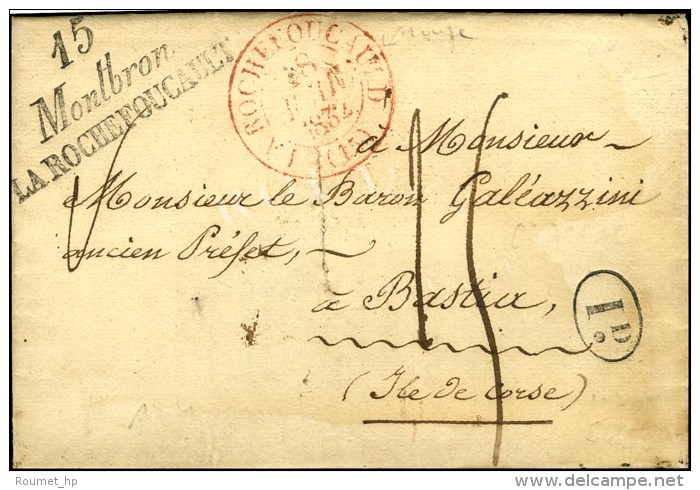 15
Montbron
LA ROCHEFOUCAULT
LA ROCHEFOUCAULD (15)
28
JUIN
1832
Rouge
à Monsieur
Monsieur le Baron Galéazzini
ancien Préfet,
à Bastia,
(Ile de Corse)
1D
Roumet_hp
www.delcampe.net